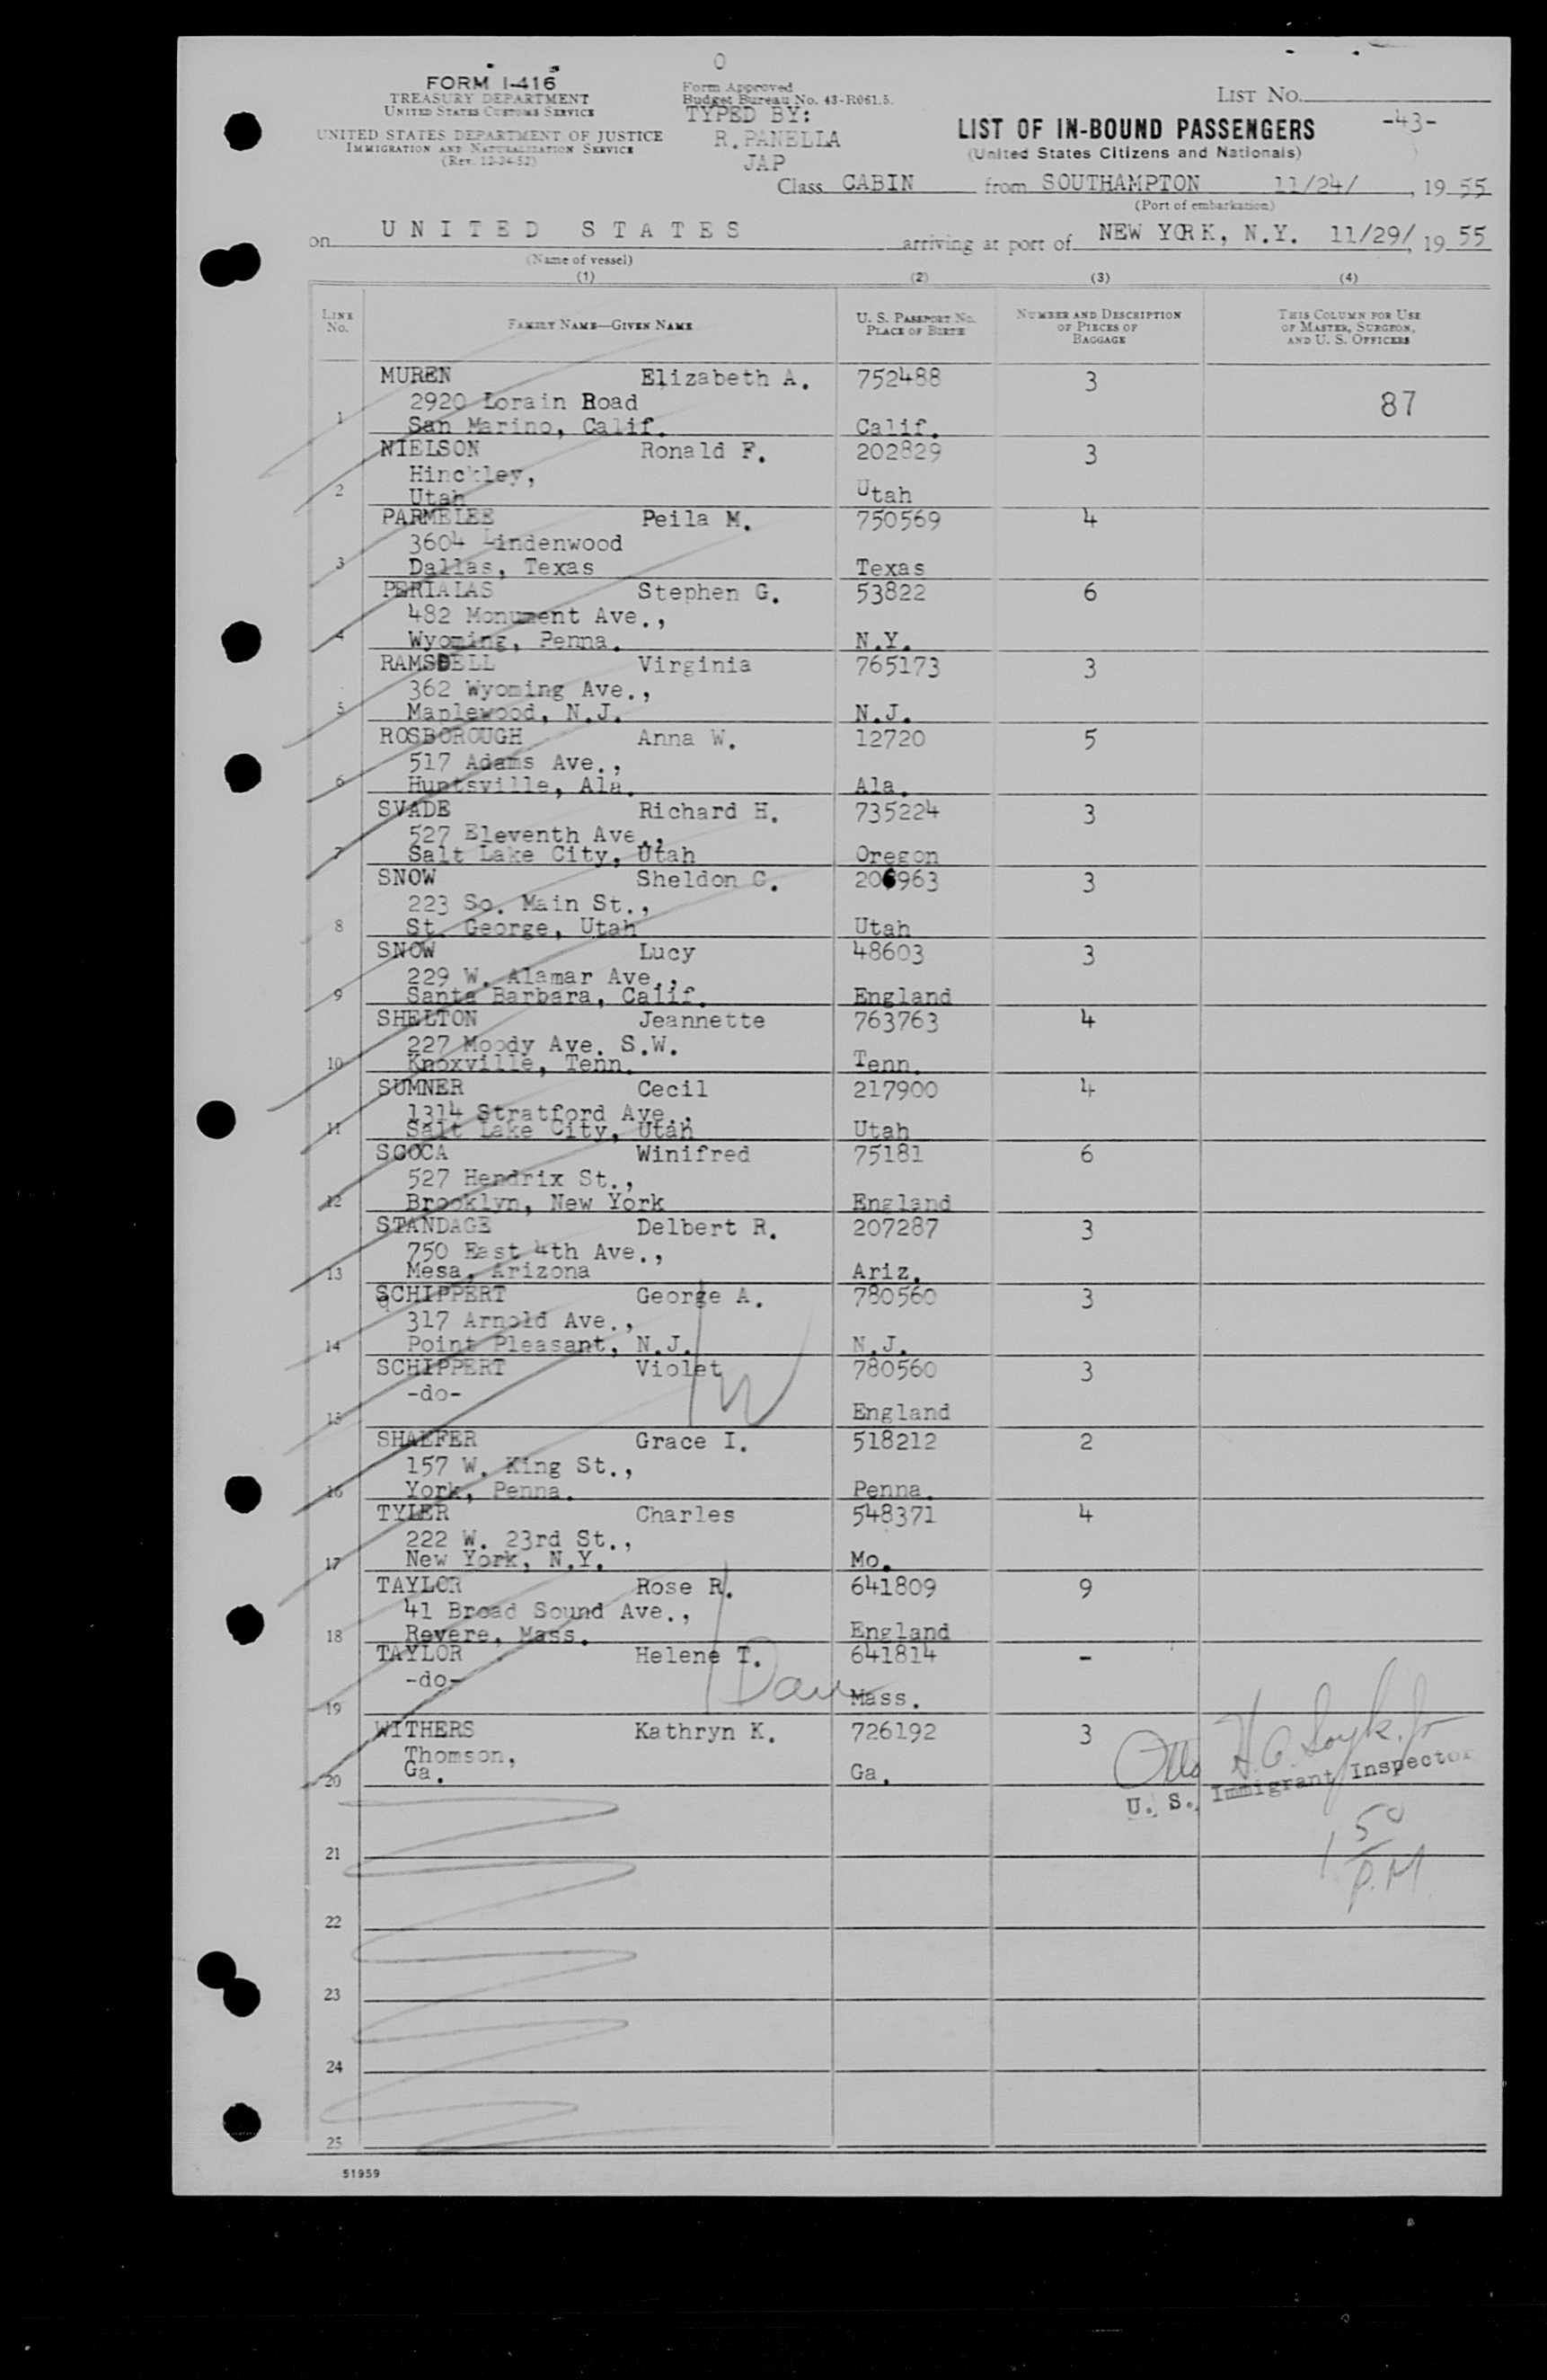 FORM I-416
TREASURY DEPARTMENT
UNITED STATES CUSTOMS SERVICE
UNITED STATES DEPARTMENT OF JUSTICE
IMMIGRATION AND NATURALIZATION SERVICE
(Rev. 12-24-52)
O
Form Approved
Budget Bureau No. 43-R061.5.
TYPED BY:
R. PANELLA
JAP
LIST NO.
-43-
LIST OF IN-BOUND PASSENGERS
(United States Citizens and Nationals)
Class CABIN from SOUTHAMPTON 11/24/, 19 55
(Port of embarkation)
on UNITED STATES arriving at port of NEW YORK, N.Y. 11/29/, 19 55
(Name of vessel)
(1) (2) (3) (4)
LINE NO. FAMILY NAME—GIVEN NAME U. S. PASSPORT NO. PLACE OF BIRTH NUMBER AND DESCRIPTION OF PIECES OF BAGGAGE THIS COLUMN FOR USE OF MASTER, SURGEON, AND U. S. OFFICERS
MUREN Elizabeth A. 752488 3
2920 Lorain Road 87
1 San Marino, Calif. Calif.
NIELSON Ronald F. 202829 3
Hinckley,
2 Utah Utah
PARMELEE Peila M. 750569 4
3604 Lindenwood
3 Dallas, Texas Texas
PERIALAS Stephen G. 53822 6
482 Monument Ave.,
4 Wyoming, Penna. N.Y.
RAMSDELL Virginia 765173 3
362 Wyoming Ave.,
5 Maplewood, N.J. N.J.
ROSBOROUGH Anna W. 12720 5
517 Adams Ave.,
6 Huntsville, Ala. Ala.
SVADE Richard H. 735224 3
527 Eleventh Ave.,
7 Salt Lake City, Utah Oregon
SNOW Sheldon C. 206963 3
223 So. Main St.,
8 St. George, Utah Utah
SNOW Lucy 48603 3
229 W. Alamar Ave.,
9 Santa Barbara, Calif. England
SHELTON Jeannette 763763 4
227 Moody Ave. S.W.
10 Knoxville, Tenn. Tenn.
SUMNER Cecil 217900 4
1314 Stratford Ave.,
11 Salt Lake City, Utah Utah
SCOCA Winifred 75181 6
527 Hendrix St.,
12 Brooklyn, New York England
STANDAGE Delbert R. 207287 3
750 East 4th Ave.,
13 Mesa, Arizona Ariz.
SCHIPPERT George A. 780560 3
317 Arnold Ave.,
14 Point Pleasant, N.J. N.J.
SCHIPPERT Violet 780560 3
-do- W
15 England
SHAEFER Grace I. 518212 2
157 W. King St.,
16 York, Penna. Penna.
TYLER Charles 548371 4
222 W. 23rd St.,
17 New York, N.Y. Mo.
TAYLOR Rose R. 641809 9
41 Broad Sound Ave.,
18 Revere, Mass. England
TAYLOR Helene T. 641814 -
-do-
19 Mass.
WITHERS Kathryn K. 726192 3
Thomson,
20 Ga. Ga.
U. S. Immigrant Inspector
1 50 P.M
21
22
23
24
25
51959